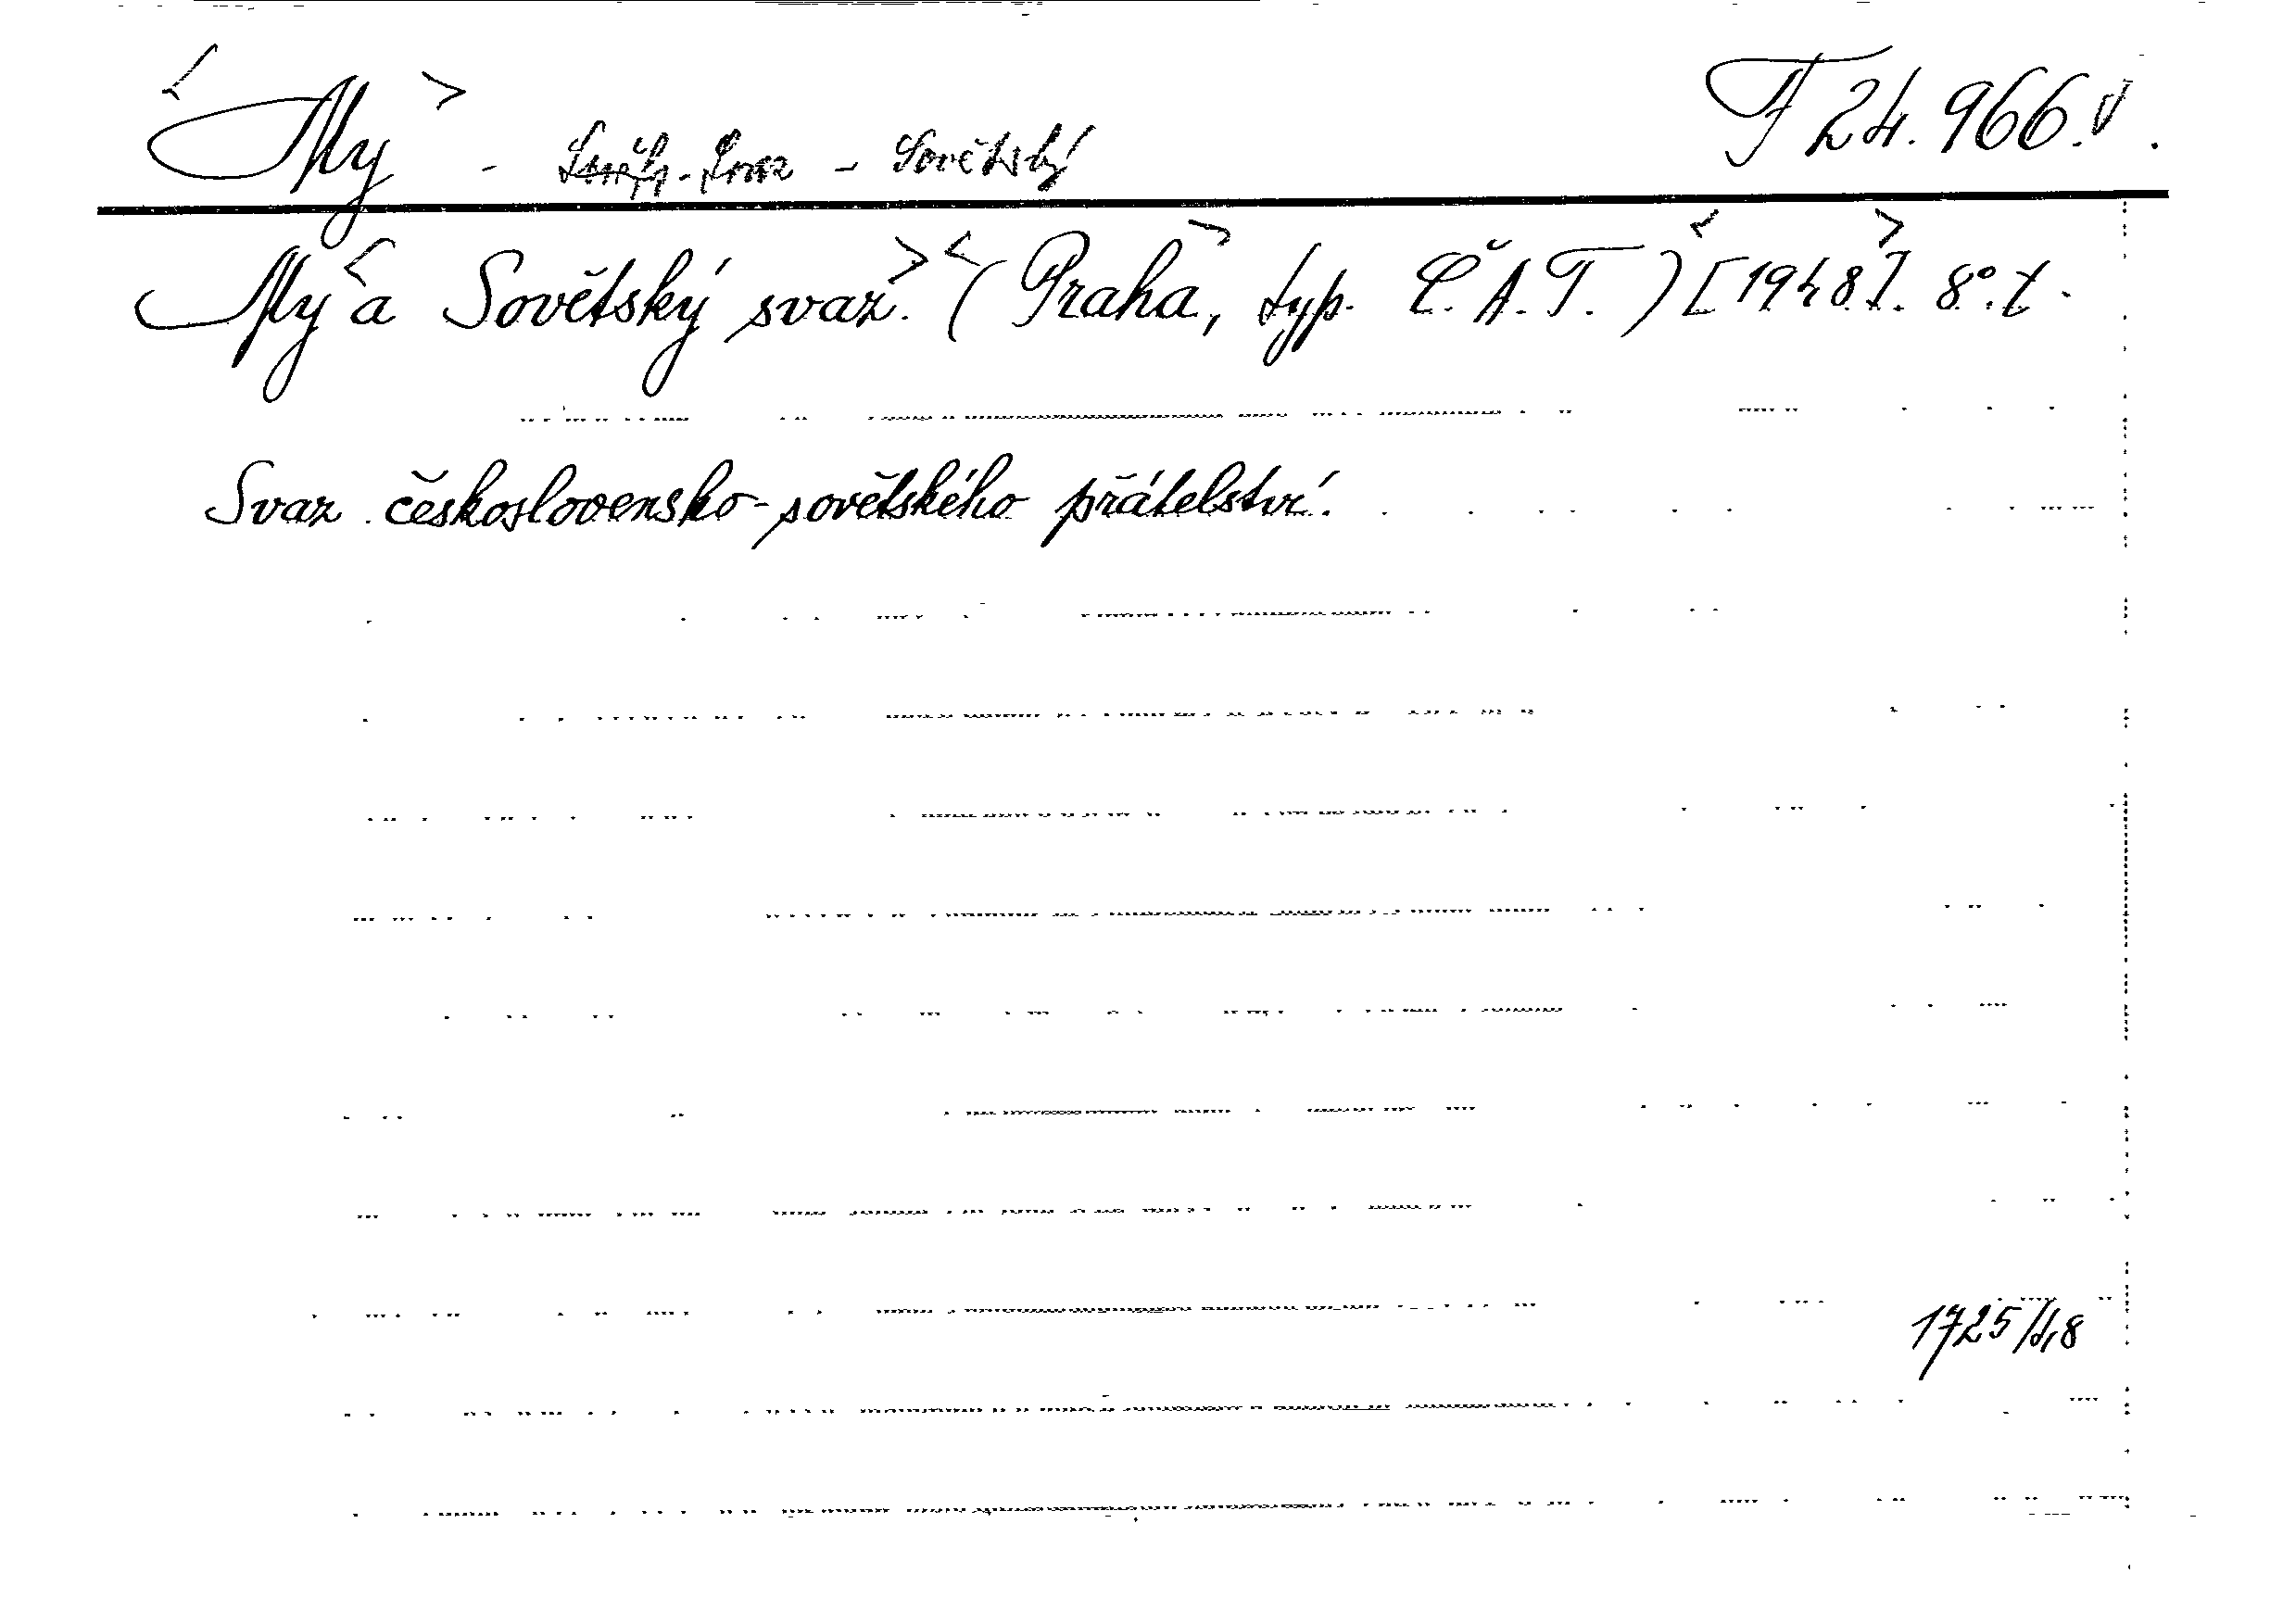 <My> - Svaz - Sovětský F 24.966.
My <a Sovětský svaz.> <(Praha,> typ. Č.A.T.) <[1948].> 8°. t.
Svaz československo-sovětského přátelství.
1725/48